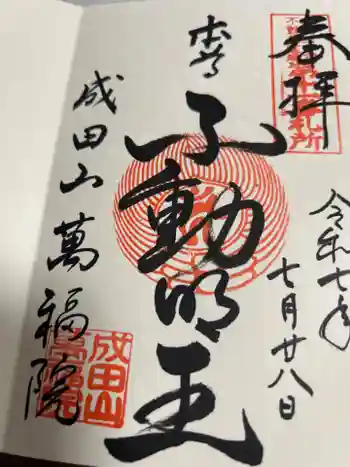 奉拝
令和七年
七月廿八日
本尊
不動明王
成田山萬福院
成田山